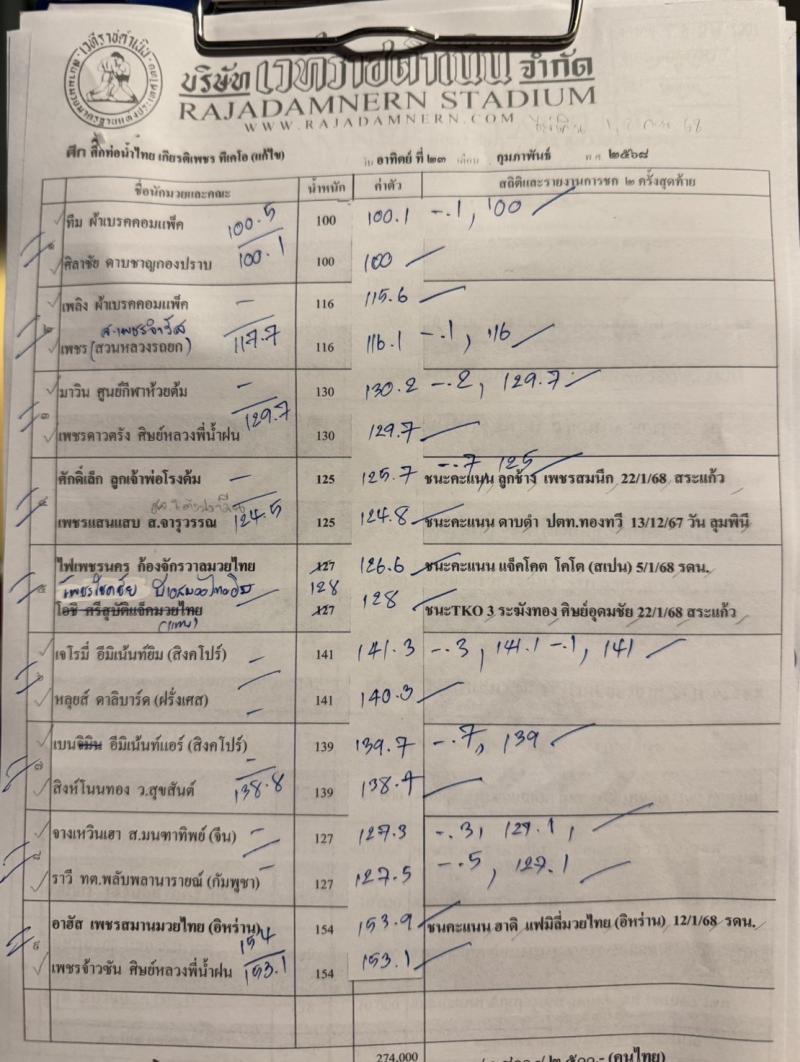 เวทีราชดำเนิน
บริษัท เวทีราชดำเนิน จำกัด
RAJADAMNERN STADIUM
WWW.RAJADAMNERN.COM
ศึก ศึกท่อน้ำไทย เกียรติเพชร ทีเคโอ (แก้ไข) วัน อาทิตย์ ที่ ๒๓ เดือน กุมภาพันธ์ พ.ศ. ๒๕๖๘
ชื่อนักมวยและคณะ น้ำหนัก ค่าตัว สถิติและรายงานการชก ๒ ครั้งสุดท้าย
ทีม ผ้าเบรคคอมแพ็ค 100.5 100 100.1 -.1, 100
๑
ศิลาชัย ดาบชาญกองปราบ 100.1 100 100
เพลิง ผ้าเบรคคอมแพ็ค - 116 115.6
๒ ส.เพชรจำรัส
เพชร (สวนหลวงรถยก) 117.7 116 116.1 -.1, 116
มาวิน ศูนย์กีฬาห้วยต้ม - 130 130.2 -.2, 129.7
๓
เพชรดาวตรัง ศิษย์หลวงพี่น้ำฝน 129.7 130 129.7
ศักดิ์เล็ก ลูกเจ้าพ่อโรงต้ม - 125 125.7 -.7 125 ชนะคะแนน ลูกช้าง เพชรสมนึก 22/1/68 สระแก้ว
๔
เพชรแสนแสบ ส.จารุวรรณ 124.5 125 124.8 ชนะคะแนน ดาบดำ ปตท.ทองทวี 13/12/67 วัน ลุมพินี
ไฟเพชรนคร ก้องจักรวาลมวยไทย 127 126.6 ชนะคะแนน แจ็คโคต โคโต (สเปน) 5/1/68 รดน.
๕ เพชรโชคชัย 128
โอชิ ศรีสุบัติแจ็คมวยไทย 127 128 ชนะTKO 3 ระฆังทอง ศิษย์อุดมชัย 22/1/68 สระแก้ว
(แทน)
เจโรมี่ อีมิเน้นท์ยิม (สิงคโปร์) - 141 141.3 -.3, 141.1 -.1, 141
๖
หลุยส์ ดาลิบาร์ด (ฝรั่งเศส) - 141 140.3
เบนจิมิน อีมิเน้นท์แอร์ (สิงคโปร์) - 139 139.7 -.7, 139
๗
สิงห์โนนทอง ว.สุขสันต์ 138.8 139 138.4
จางเหวินเฮา ส.มนฑาทิพย์ (จีน) - 127 127.3 -.3, 127.1,
๘
ราวี ทต.พลับพลานารายณ์ (กัมพูชา) - 127 127.5 -.5, 127.1
อาฮัส เพชรสมานมวยไทย (อิหร่าน) 154 154 153.9 ชนคะแนน ฮาดิ แฟมิลี่มวยไทย (อิหร่าน) 12/1/68 รดน.
๙
เพชรจ้าวซัน ศิษย์หลวงพี่น้ำฝน 153.1 154 153.1
274,000 (คนไทย)